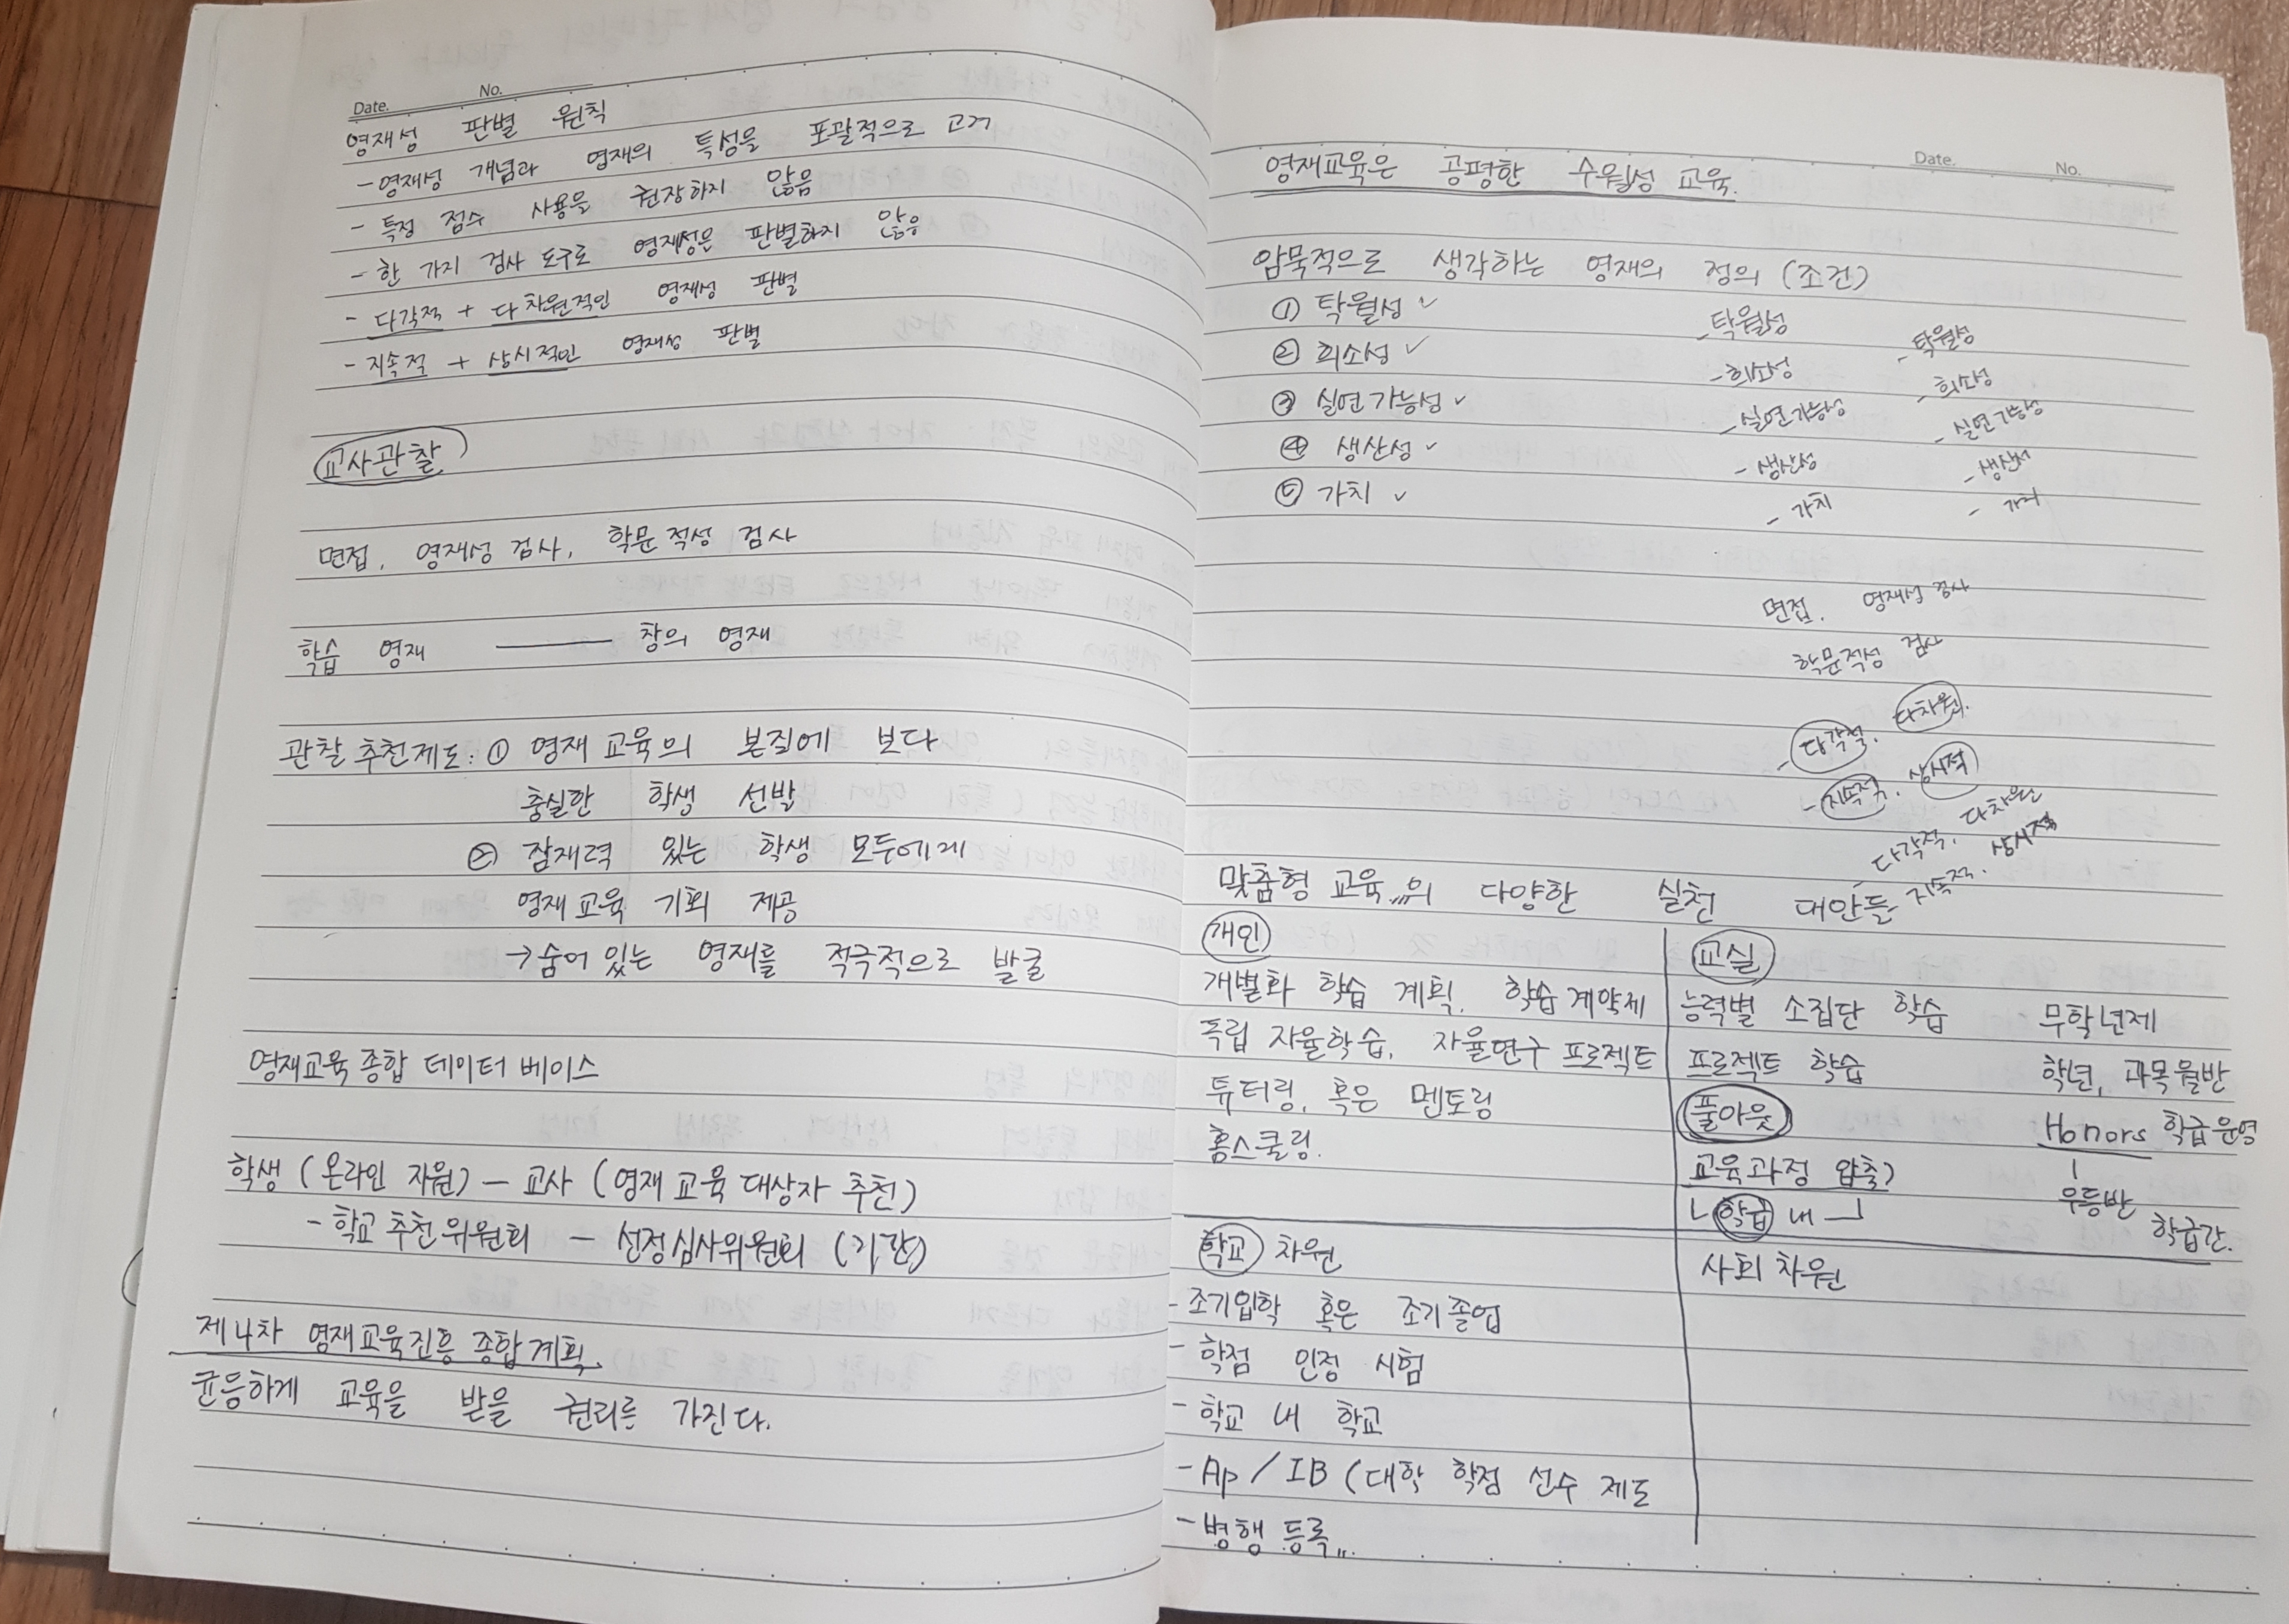 Date. No.
영재성 판별 원칙
- 영재성 개념과 영재의 특성을 포괄적으로 고려
- 특정 점수 사용을 권장하지 않음
- 한 가지 검사 도구로 영재성은 판별하지 않음
- 다각적 + 다차원적인 영재성 판별
- 지속적 + 상시적인 영재성 판별
교사관찰
면접, 영재성 검사, 학문적성 검사
학습 영재 —— 창의 영재
관찰 추천제도: ① 영재 교육의 본질에 보다
충실한 학생 선발
② 잠재력 있는 학생 모두에게
영재 교육 기회 제공
→ 숨어 있는 영재를 적극적으로 발굴
영재교육 종합 데이터 베이스
학생 (온라인 자원) - 교사 (영재 교육 대상자 추천)
- 학교 추천위원회 - 선정심사위원회 (기관)
제4차 영재교육진흥 종합계획
균등하게 교육을 받을 권리를 가진다.
Date. No.
영재교육은 공평한 수월성 교육.
암묵적으로 생각하는 영재의 정의 (조건)
① 탁월성 ✓
② 희소성 ✓
③ 실연가능성 ✓
④ 생산성 ✓
⑤ 가치 ✓
- 탁월성
- 희소성
- 실연가능성
- 생산성
- 가치
- 탁월성
- 희소성
- 실연가능성
- 생산성
- 가치
면접, 영재성 검사
학문적성 검사
- 다각적, 다차원,
- 지속적, 상시적
- 다각적, 다차원
지속적, 상시적
맞춤형 교육의 다양한 실천 대안들
개인
개별화 학습 계획, 학습계약제
독립 자율학습, 자율연구 프로젝트
튜터링, 혹은 멘토링
홈스쿨링.
교실
능력별 소집단 학습
프로젝트 학습
풀아웃
교육과정 압축)
학급 내
무학년제
학년, 과목월반
Honors 학급운영
우등반
학급간.
학교 차원
- 조기입학 혹은 조기졸업
- 학점 인정 시험
- 학교 내 학교
- Ap / IB (대학 학점 선수 제도
- 병행 등록...
사회 차원